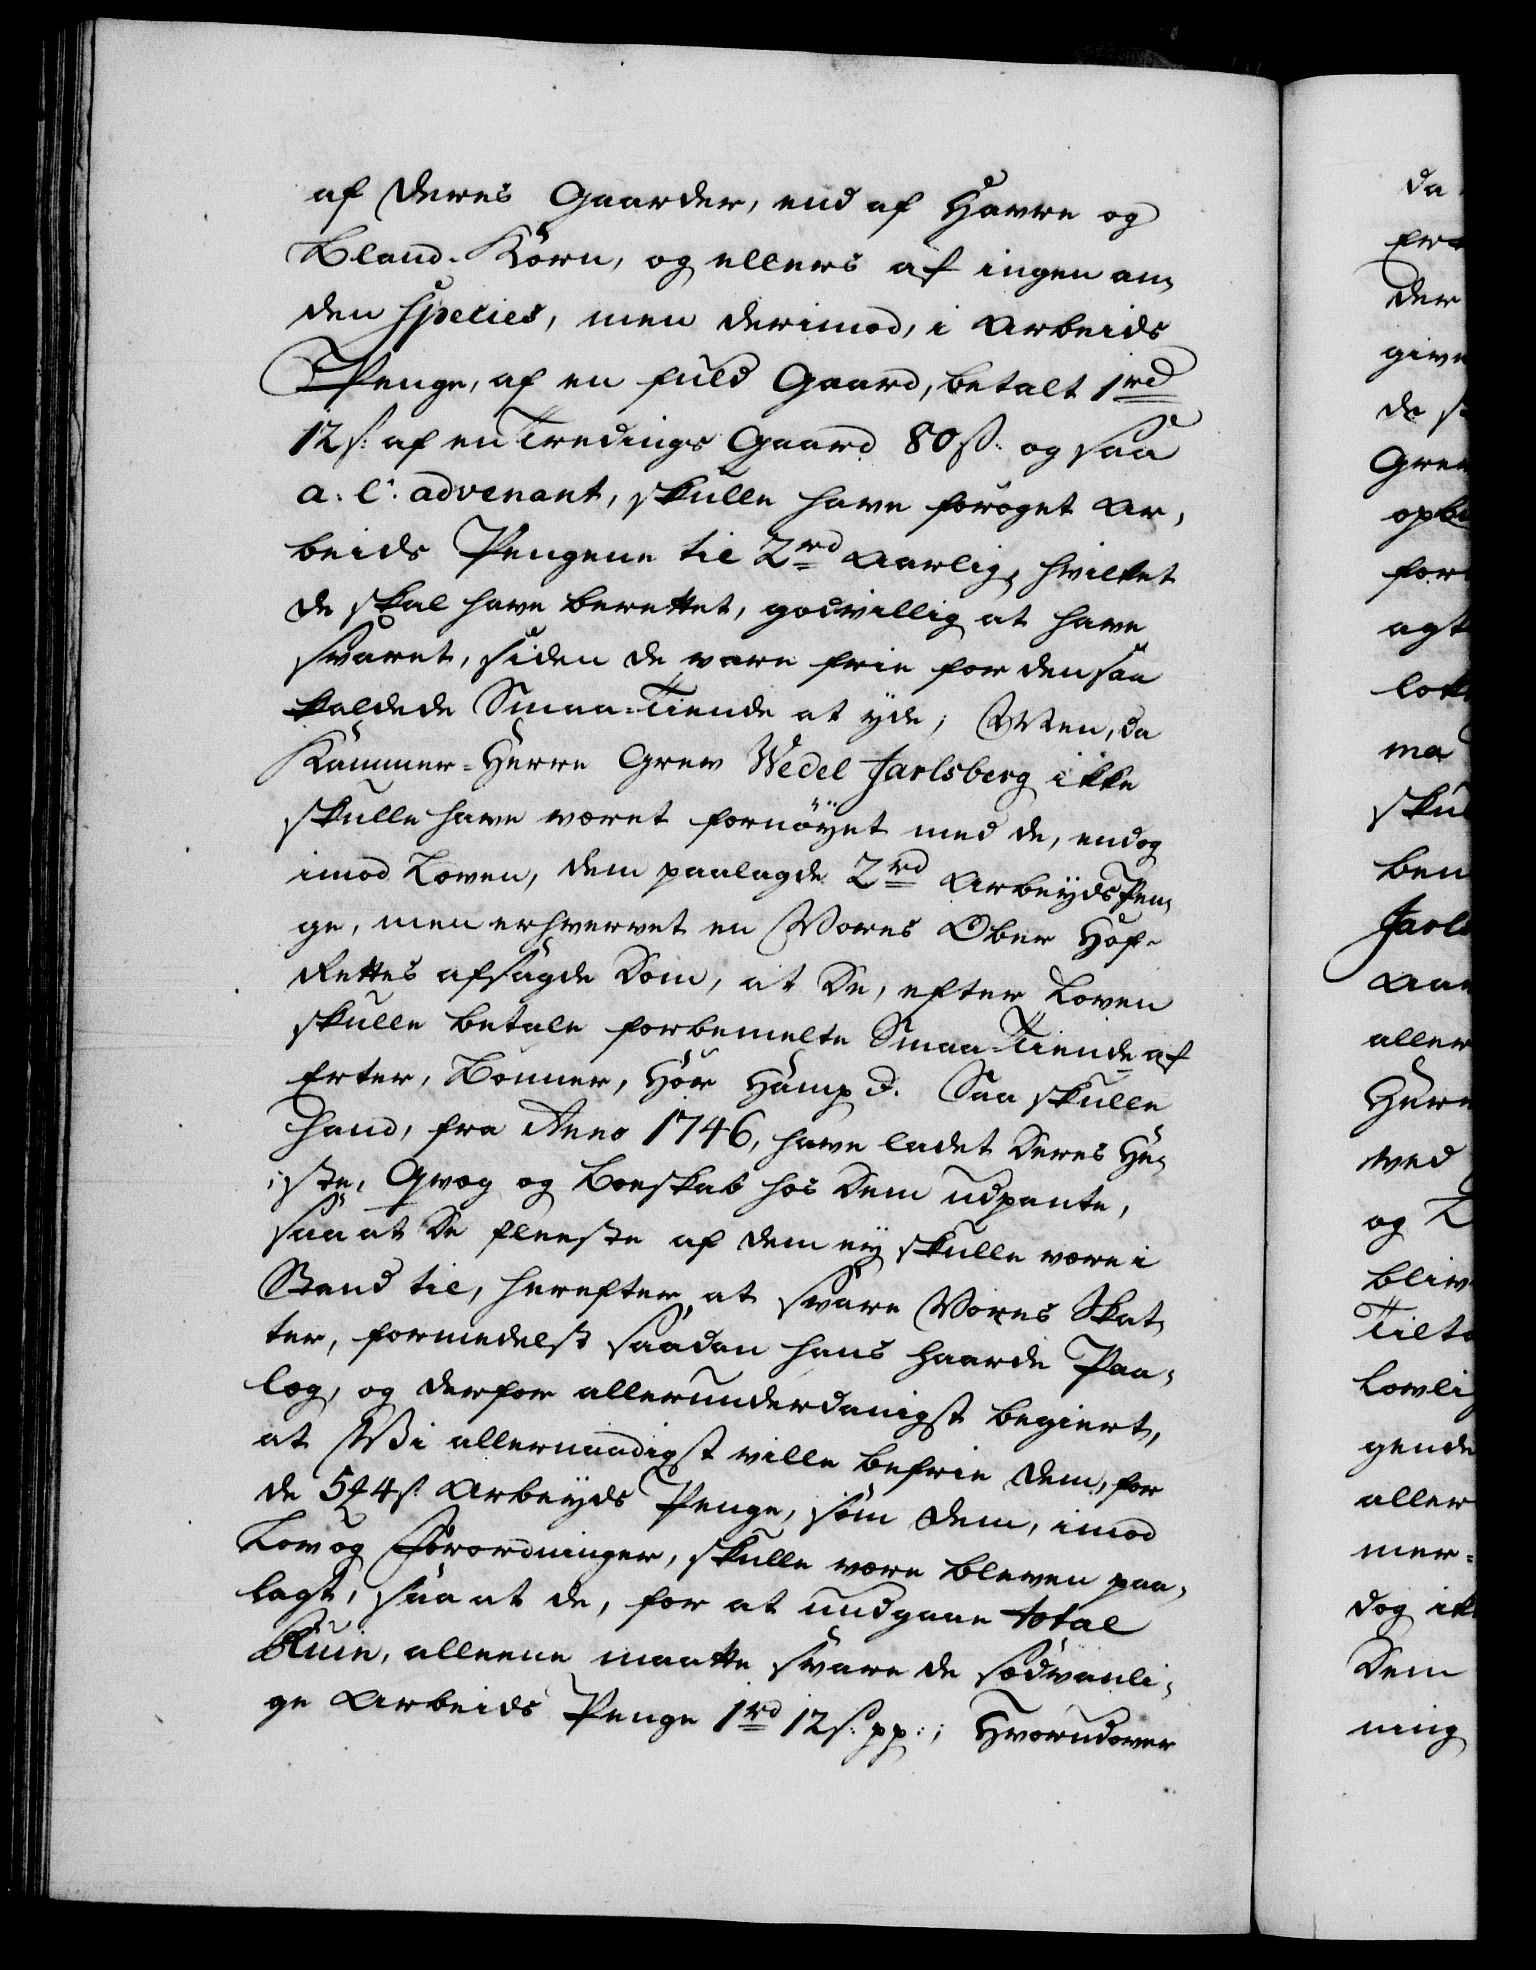 af deres Gaarder, end af Havre og
Bland-Korn, og ellers af ingen an,
den Species, men derimod, i Arbeids
Penge, af en fuld Gaard, betalt 1rd
12 s: af en Tredings Gaard 80 s: og saa
a. l'. advenant, skulle have forøget Ar,
beids Pengene til 2rd Aarlig, hvilket
de skal have berettet, godvillig at have
svaret, siden de vare frie for den saa
kaldede Smaa-Tiende at yde; Men, da
Kammer-Herre Grev Wedel Jarlsberg ikke
skulle have været fornöyet med de, endog
imod Loven, dem paalagde 2rd Arbeyds Pen,
ge, men erhvervet en Vores Ober Hof-
Rettes afsagde Dom, at De, efter Loven
skulle betale forbemelte Smaa-Tiende af
Erter, Bönner, Hör Hamp &. Saa skulle
Hand, fra Anno 1746, have ladet Deres He,
;ste, Qvæg og Boeskab hos Dem udpante,
saa at De fleeste af dem ey skulle være i
Stand til, herefter at svare Vores Skat,
ter, formedelst saadan hans haarde Paa,
læg, og derfor allerunderdanigst begiert,
at Vi allernaadigst ville befrie dem, for
de 5 ƒ 4 s. Arbeyds Penge, som dem, imod
Lov og Forordninger, skulle være bleven paa,
lagt, saa at de, for at undgaae total
Ruin, alleene maatte svare de sædvanli,
ge Arbeids Penge 1rd 12 s: pp:; Hvorudover
da
Er
der
give
de s
Gre
opb
for
agt
lok
ma
sku
ben
Jarls
Aar
aller
Herr
ved
og L
bliv
Tilt
lovli
gende
aller
mer=
dog ik
Dem
ning